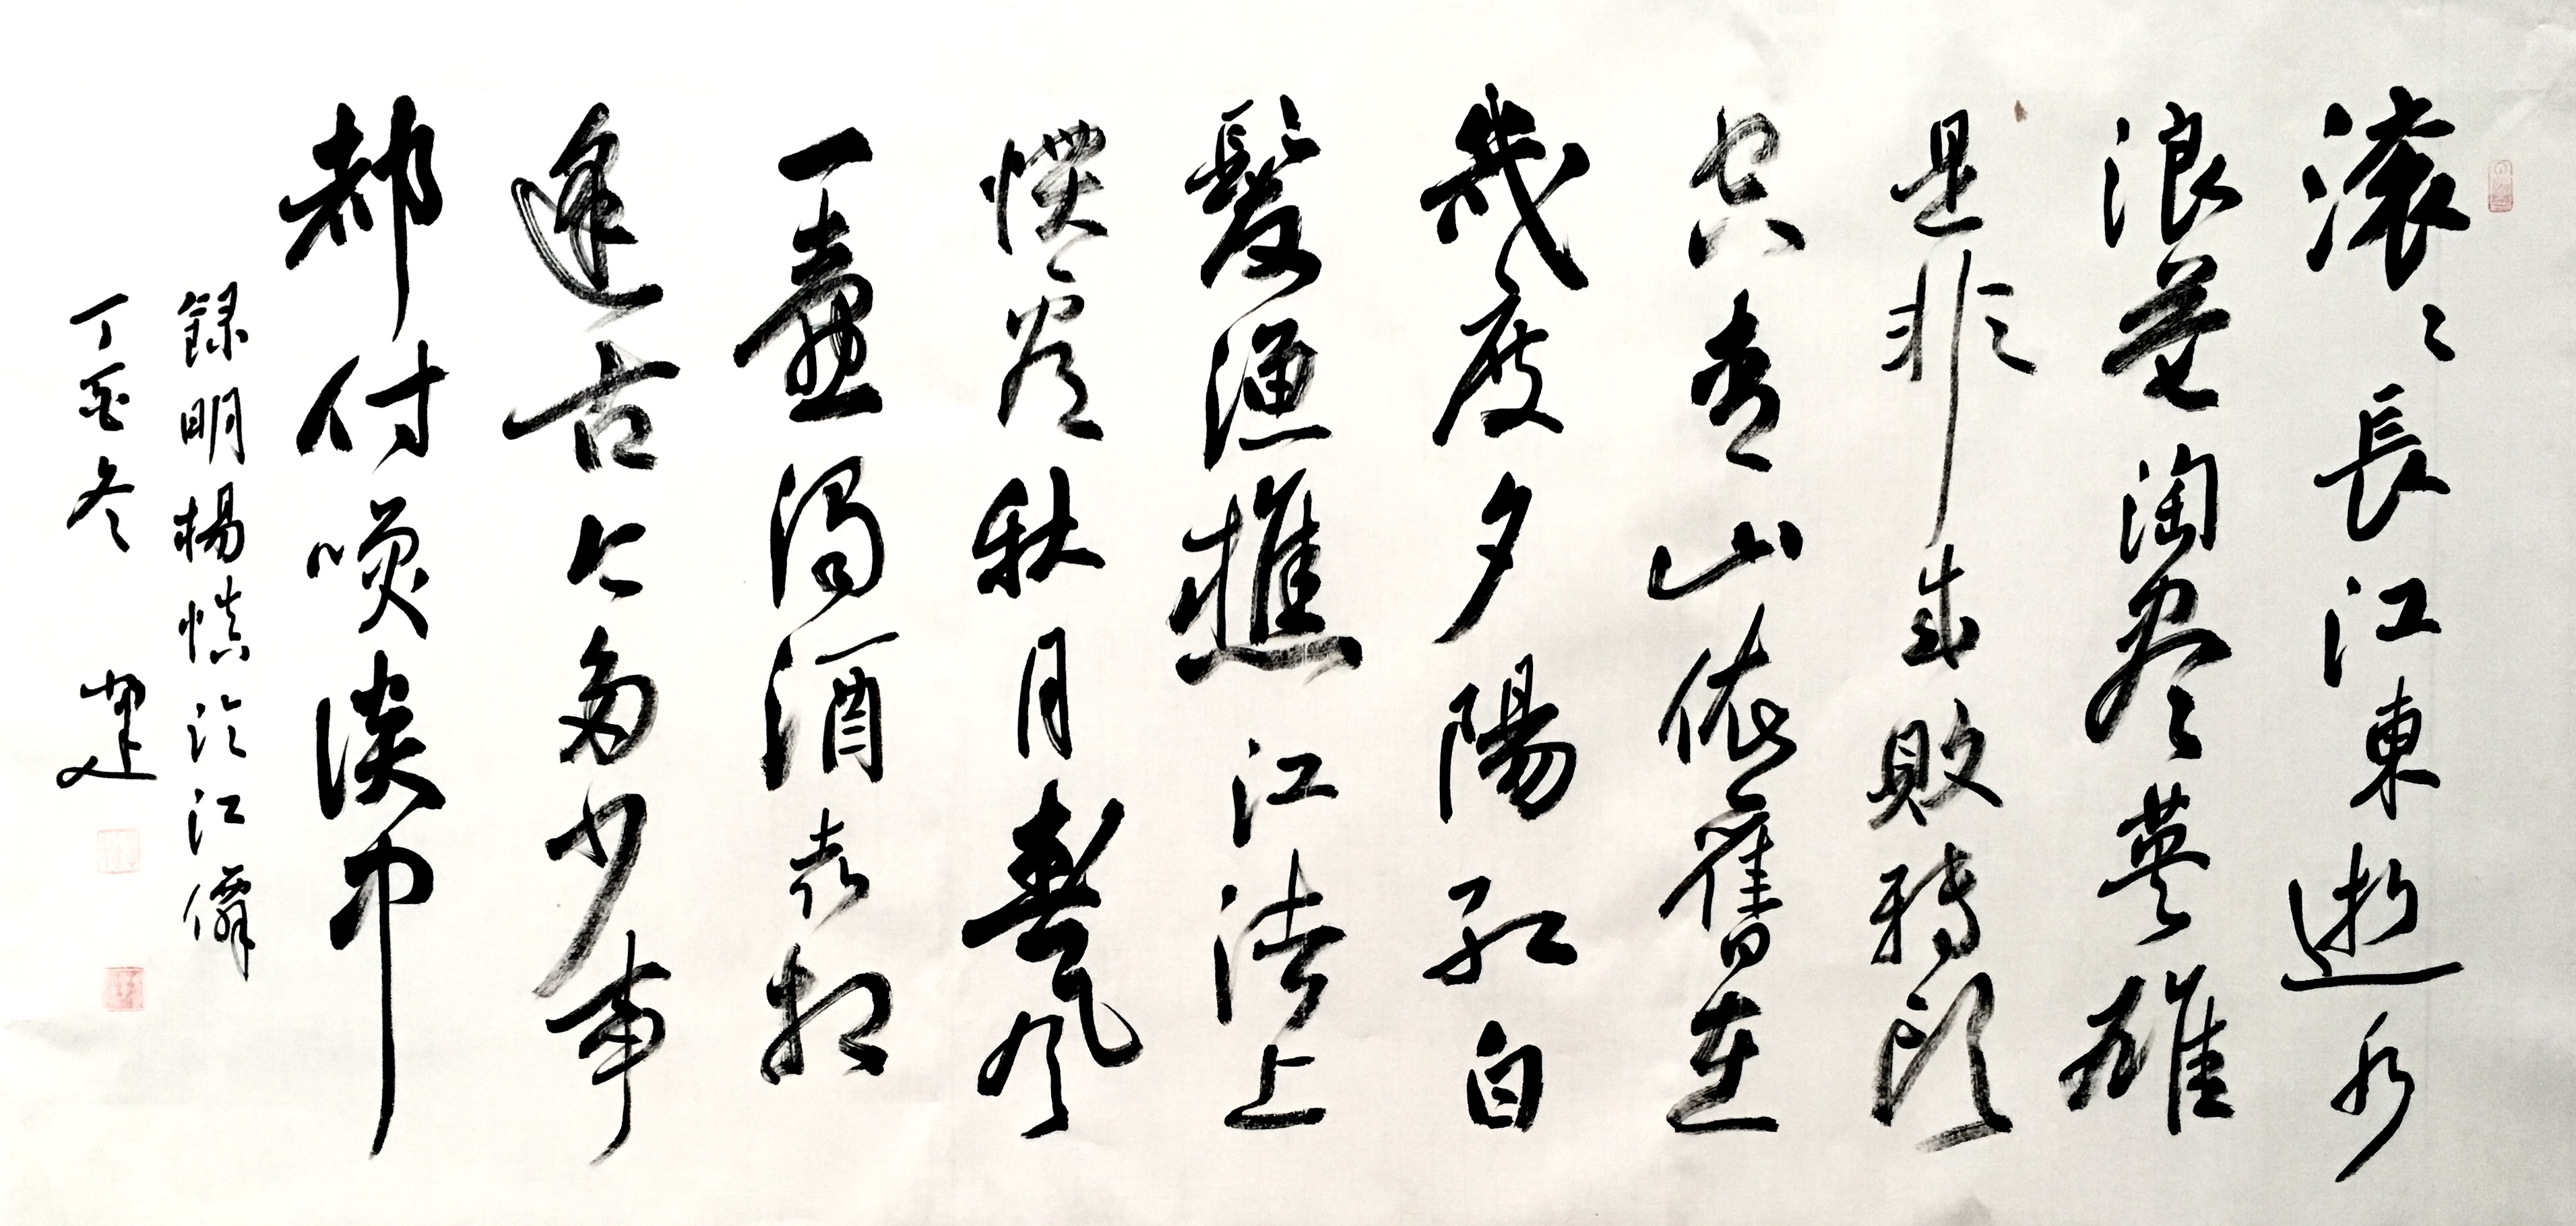 滚〻長江東逝水
浪花淘尽英雄
是非成敗轉頭
空青山依舊在
幾度夕陽紅白
髮漁樵江渚上
慣看秋月春風
一壷濁酒喜相
逢古今多少事
都付笑談中
録明楊慎臨江僊
丁酉冬 建